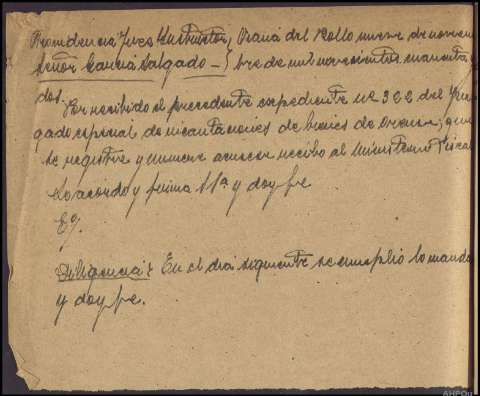 Providencia Juez Instructor, Viana del Bollo nueve de noviem
Señor García Salgado - } bre de mil novecientos cuarenta y
dos.
Por recibido el precedente expediente nº 322 del Juz
gado especial de incautaciones de bienes de Orense, que
se registre y numere acusar recibo al Ministerio Fiscal
Lo acordo y firma S Sª y doy fe
E/.
Diligencia } En el dia siguiente se cumplio lo mandado
y doy fe.
AHPOu